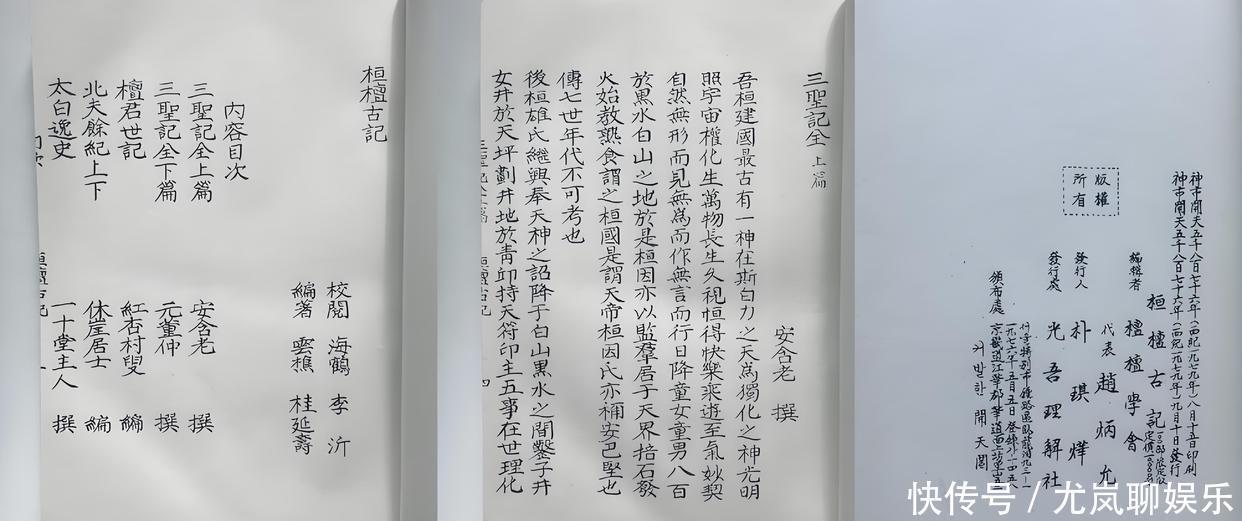 桓檀古記
校閱 海鶴 李 沂
編著 雲樵 桂延壽
內容目次
三聖記全上篇 安含老 撰
三聖記全下篇 元董仲 撰
檀君世記 紅杏村叟 編
北夫餘紀上下 休崖居士 編
太白逸史 一十堂主人 撰
三聖記全 上篇
安含老 撰
吾桓建國最古有一神在斯白力之天爲獨化之神光明
照宇宙權化生萬物長生久視恒得快樂乘遊至氣妙契
自然無形而見無爲而作無言而行日降童女童男八百
於黑水白山之地於是桓因亦以監羣居于天界掊石發
火始教熟食謂之桓國是謂天帝桓因氏亦稱安巴堅也
傳七世年代不可考也
後桓雄氏繼興奉天神之詔降于白山黑水之間鑿子井
女井於天坪劃井地於靑邱持天符印主五事在世理化
神市開天五千八百七十六年(西紀一九七九年)八月十五日印刷
神市開天五千八百七十六年(西紀一九七九年)九月十日發行
桓檀古記
編輯者 檀檀學會
代表 趙炳允
版權
所有
發行人 朴琪燁
發行處 光吾理解社
서울特別市鍾路區臥龍洞九二―一
一九七六年五月五日登錄
頒布處 京畿道江華郡華道面
커발한 開天閣
快传号/尤岚聊娱乐